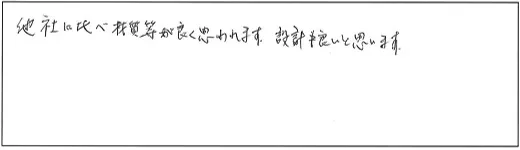 他社に比べ材質等が良く思われます。設計も良いと思います。